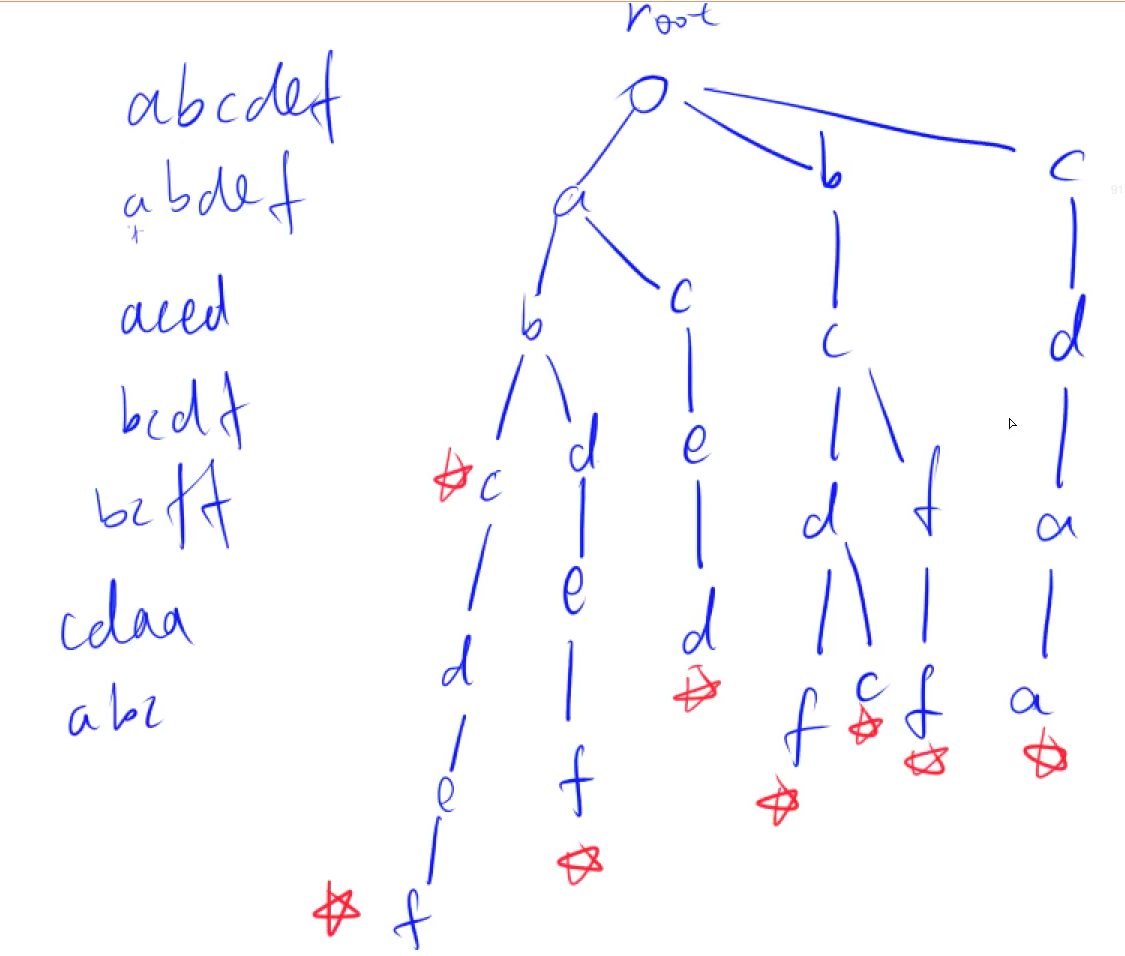 root
abcdef
abdef
aced
bcdf
bcff
cdaa
abc
a b c
b c c d
c d e d f a
d e d f c f a
e f
f
91